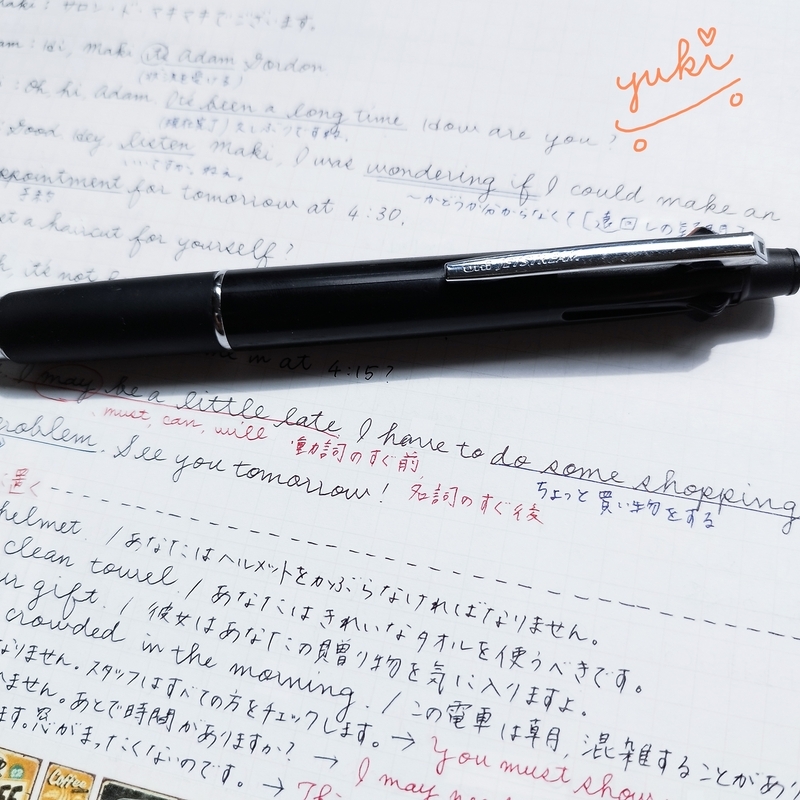 サロン・ド・マキマキでございます。
Hi, Maki. It's Adam Gordon.
yuki
Oh, hi, Adam. It's been a long time. How are you?
(現在完了) 久しぶりですね。
Good. Hey, listen Maki, I was wondering if I could make an
いいですか、ねぇ。
〜かどうか分からなくて [遠回しの
appointment for tomorrow at 4:30.
予約
et a haircut for yourself?
h, it's not
me in at 4:15?
I may be a little late. I have to do some shopping
must, can, will 動詞のすぐ前
ちょっと買い物をする
problem. See you tomorrow!
名詞のすぐ後
置く
helmet. / あなたはヘルメットをかぶらなければなりません。
clean towel / あなたはきれいなタオルを使うべきです。
ur gift. / 彼女はあなたの贈り物を気に入りますよ。
crowded in the morning. / この電車は朝、混雑することがあり
なりません。スタッフはすべての方をチェックします。→ You must show
ません。あとで時間がありますか? → I may nee
ます。窓がまったくないのです。→ Th
Coffee